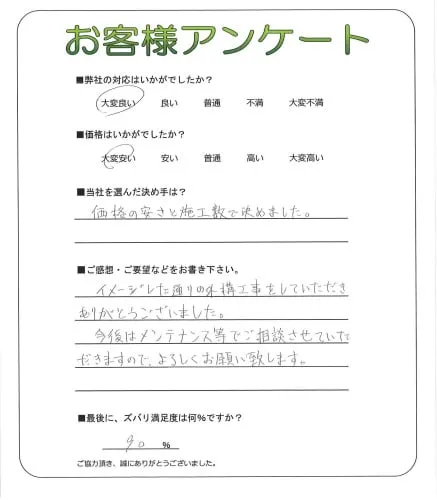 お客様アンケート
■弊社の対応はいかがでしたか？
大変良い 良い 普通 不満 大変不満
■価格はいかがでしたか？
大変安い 安い 普通 高い 大変高い
■当社を選んだ決め手は？
価格の安さと施工数で決めました。
■ご感想・ご要望などをお書き下さい。
イメージした通りの外構工事をしていただき
ありがとうございました。
今後はメンテナンス等でご相談させていた
だきますので、よろしくお願い致します。
■最後に、ズバリ満足度は何％ですか？
90 ％
ご協力頂き、誠にありがとうございました。